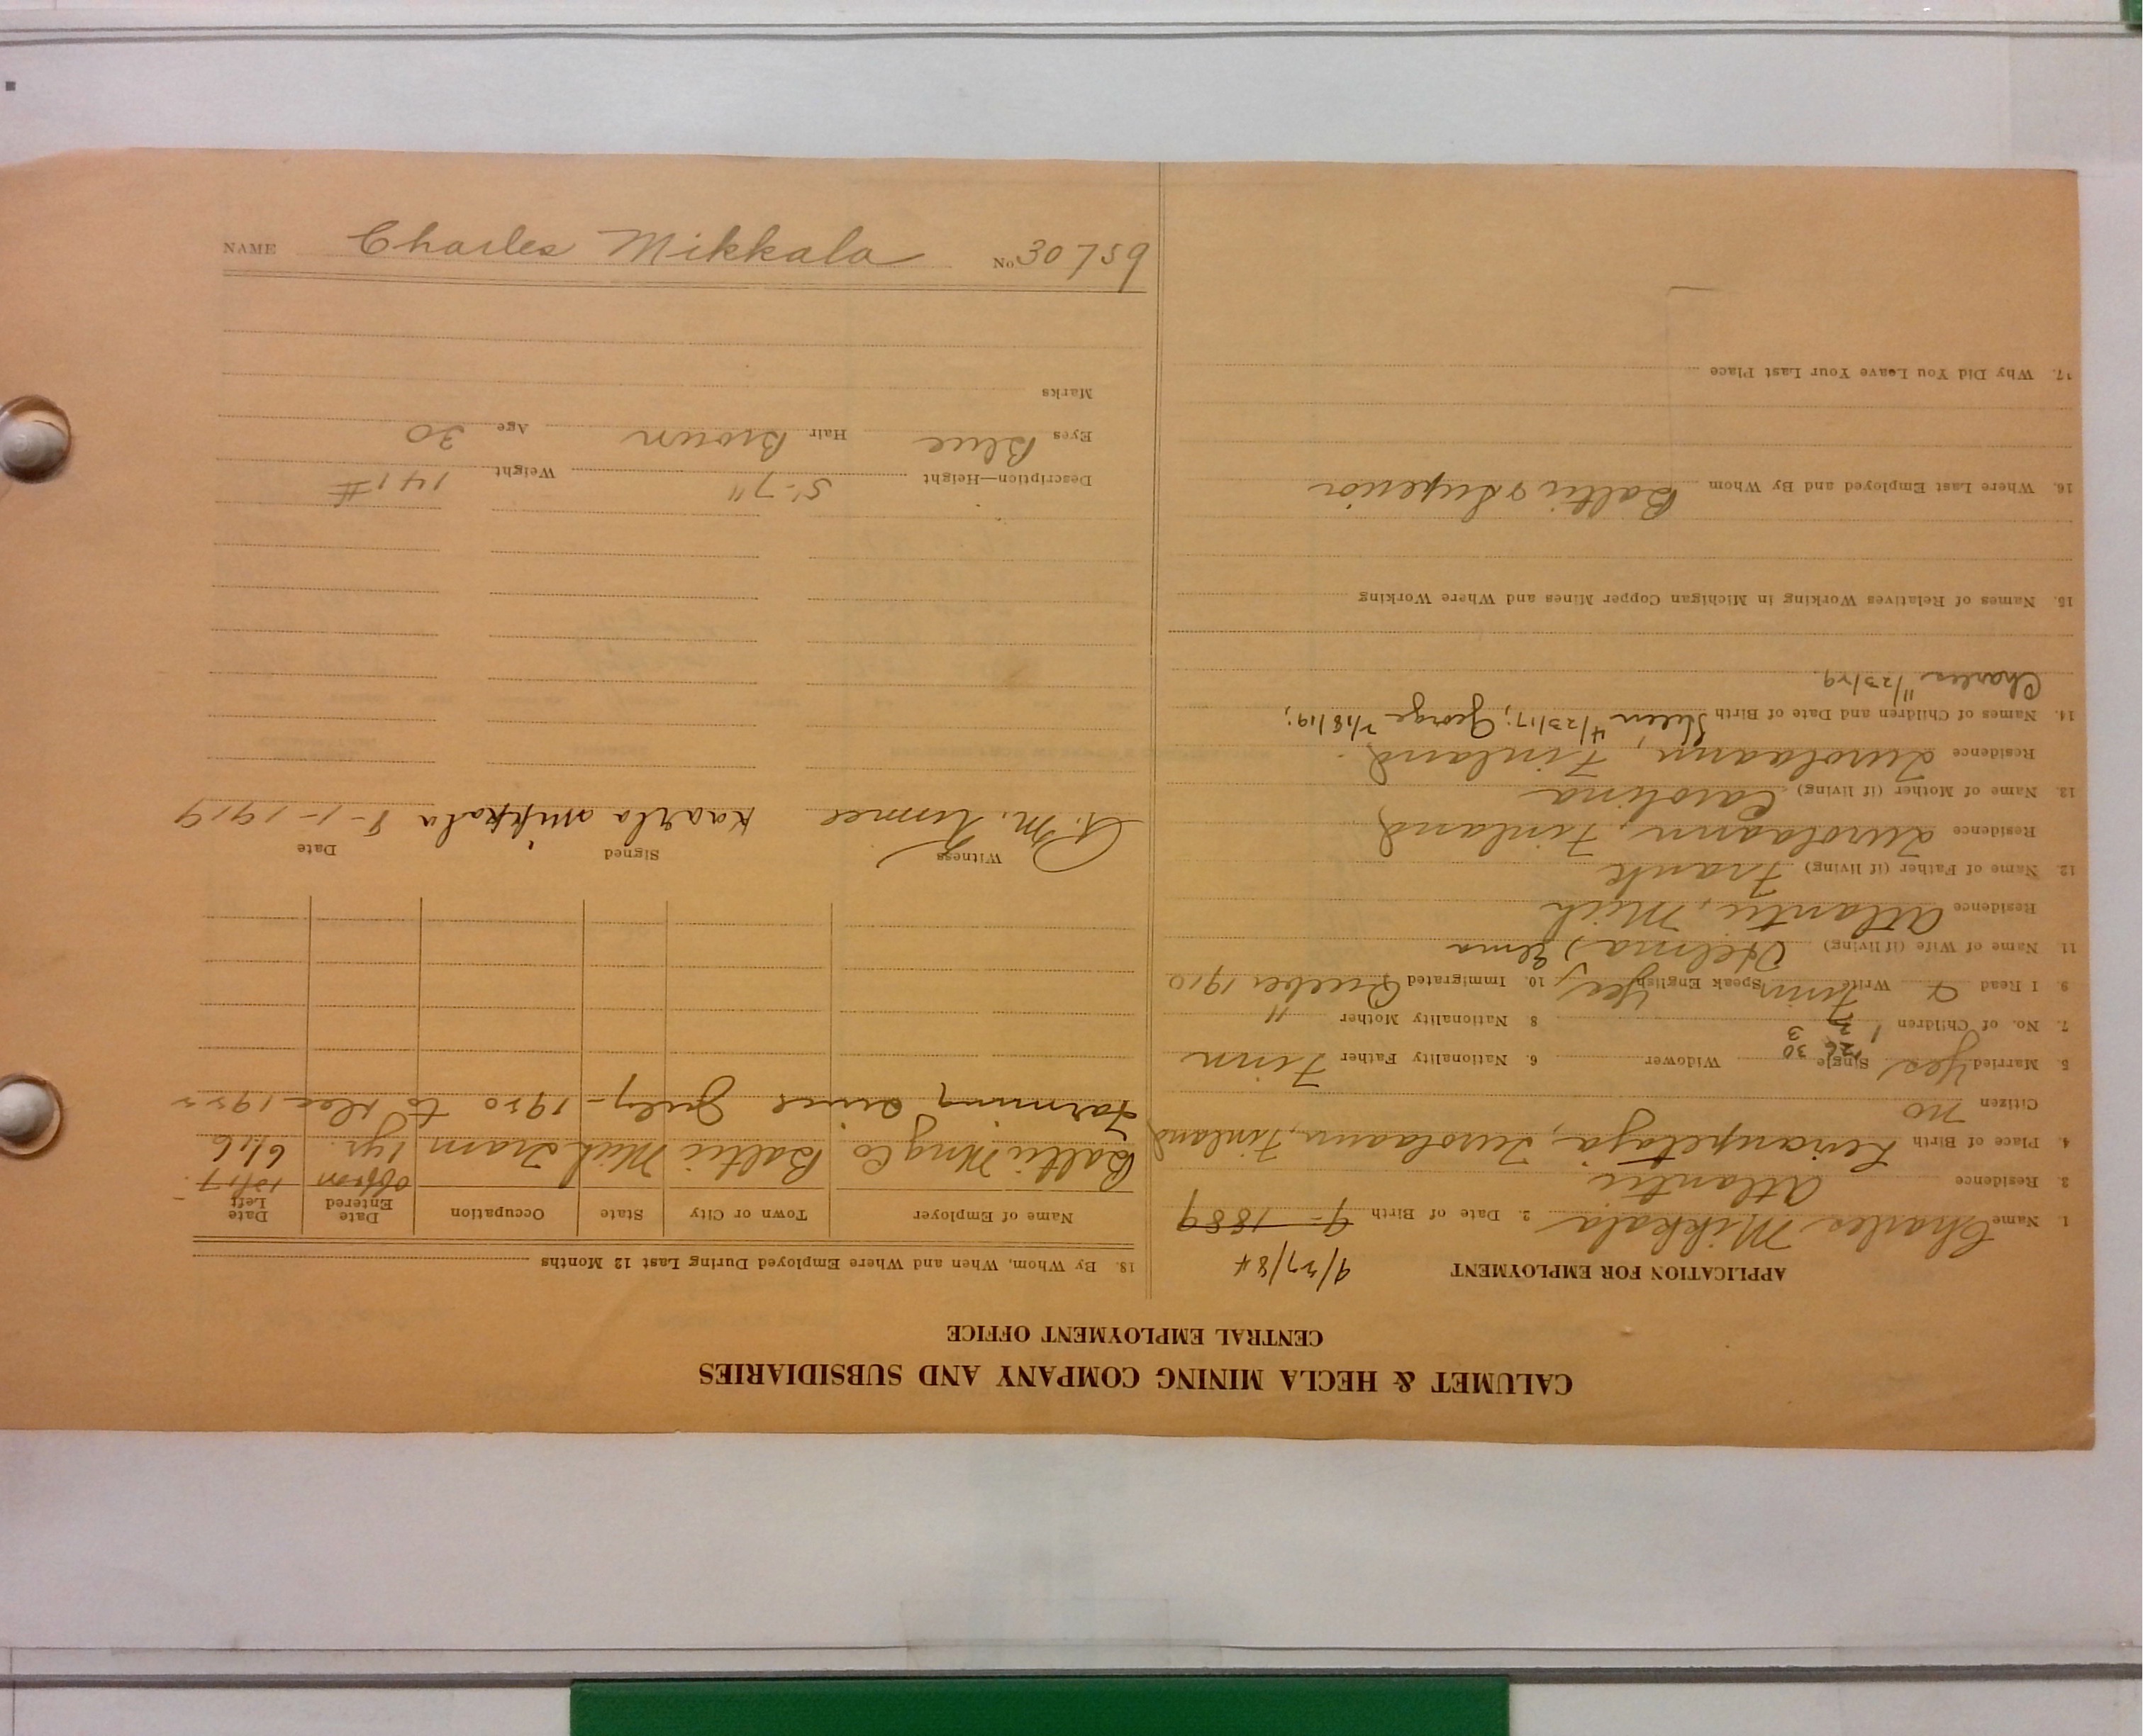 CALUMET & HECLA MINING COMPANY AND SUBSIDIARIES
CENTRAL EMPLOYMENT OFFICE
APPLICATION FOR EMPLOYMENT 9/27/84
1. Name Charles Mikkala 2. Date of Birth 9 - 1889
3. Residence Atlantic
4. Place of Birth Finland
Citizen no
5. Married Yes Single Widower 6. Nationality Father Finn
7. No. of Children 1 3 8 Nationality Mother "
9. I Read Write Finn Speak English Yes 10. Immigrated 1910
11. Name of Wife (if living) Helma
Residence Atlantic, Mich
12. Name of Father (if living) Frank
Residence Finland
13. Name of Mother (if living) Carolina
Residence Finland
14. Names of Children and Date of Birth Helen 4/23/17; George 7/18/19;
Charles 11/23/29
15. Names of Relatives Working in Michigan Copper Mines and Where Working
16. Where Last Employed and By Whom Baltic & Superior
17. Why Did You Leave Your Last Place
18. By Whom, When and Where Employed During Last 12 Months
Name of Employer Town or City State Occupation Date Entered Date Left
Baltic Mng Co Baltic Mich Tram 1 yr. 6/16
Farming since July - 1920 to Dec 1922
Witness Signed Date
Kaarla Mikkala 8-1-1919
Description—Height 5'-7" Weight 141 #
Eyes Blue Hair Brown Age 30
Marks
NAME Charles Mikkala No 30759